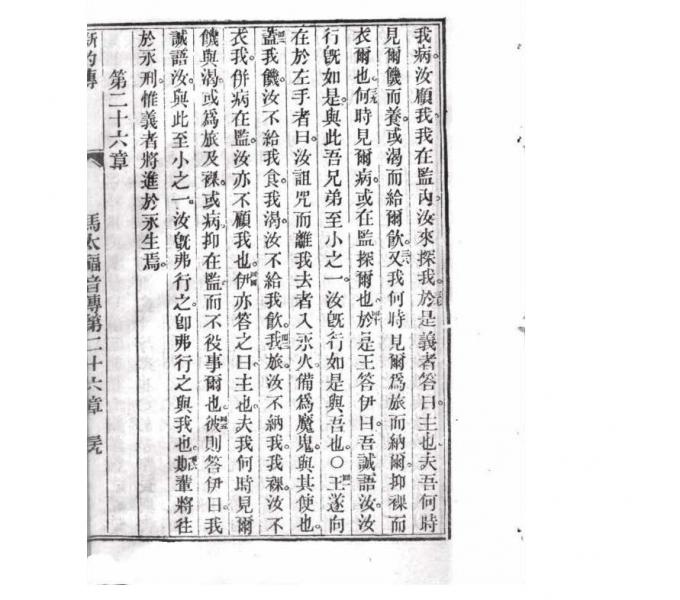 我病汝顧我我在監內汝來探我。於是義者答曰主也夫吾何時
見爾饑而養。或渴而給爾飲。又我何時見爾爲旅而納爾。抑裸而
衣爾也。何時見爾病。或在監探爾也。於是王答伊曰吾誠語汝汝
行旣如是。與此吾兄弟至小之一。汝旣行如是與吾也。〇王遂向
在於左手者曰汝詛咒而離我去者入永火備爲魔鬼與其使也。
蓋我饑汝不給我食。我渴汝不給我飲。我旅。汝不納我。我裸。汝不
衣我。併病在監汝亦不顧我也。伊亦答之曰主也。夫我何時見爾
饑與渴。或爲旅及裸。或病抑在監而不役事爾也。彼則答伊曰我
誠語汝。與此至小之一。汝旣弗行之。卽弗行之與我也。斯輩將往
於永刑。惟義者將進於永生焉。
第二十六章
馬太福音傳第二十六章